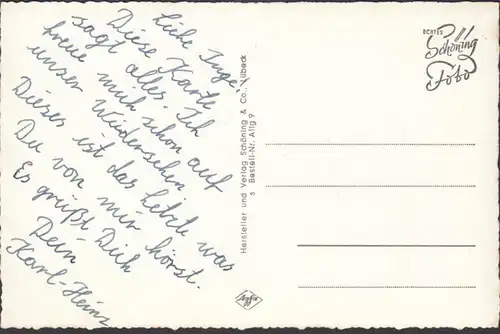 Liebe Inge,
Diese Karte
sagt alles. Ich
freue mich schon auf
unser Wiedersehen
Dieses ist das letzte was
Du von mir hörst.
Es grüßt Dich
Dein
Karl-Heinz
Hersteller und Verlag Schöning & Co., Lübeck
s Bestell-Nr. Allg 9
ECHTES
Schöning
Foto
Agfa